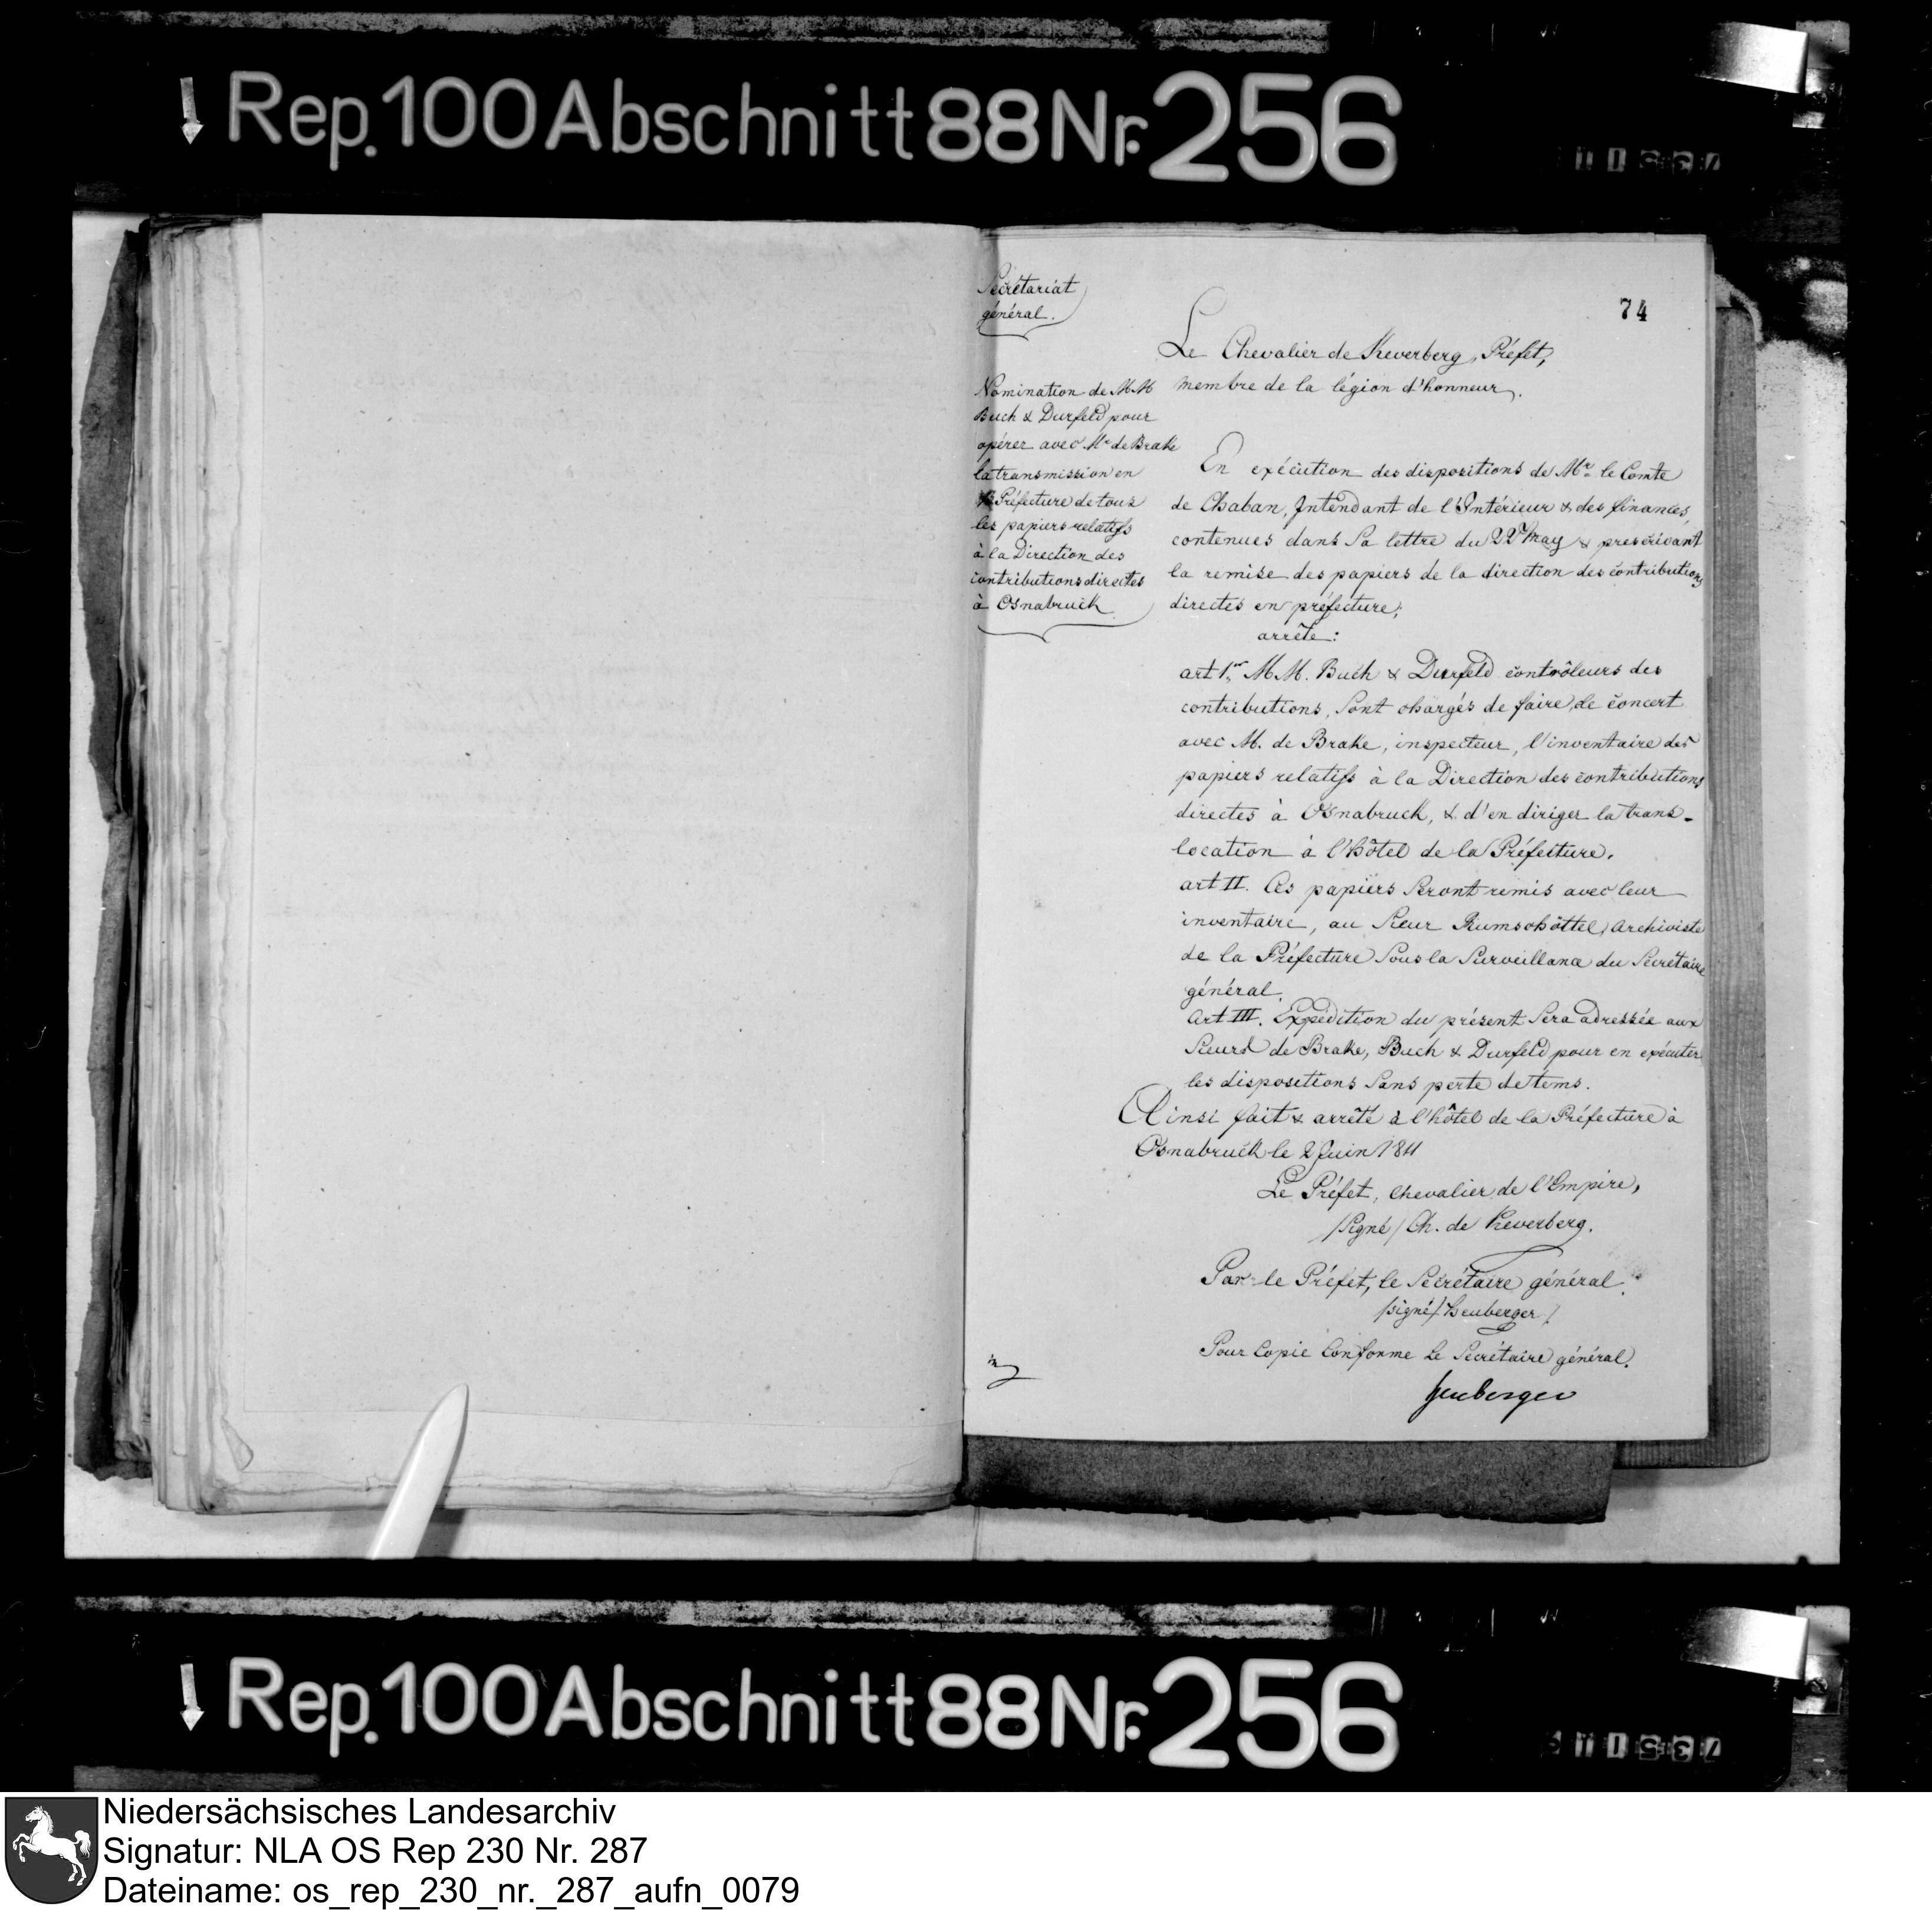 Rep. 100 Abschnitt 88 Nr. 256
Secrétariat
général.
74
Le Chevalier de Keverberg, Préfet,
membre de la légion d'honneur.
Nomination de MM
Buch & Durfeld pour
opérer avec Mr. de Brake
la transmission en
Préfecture de tous
les papiers relatifs
à la Direction des
contributions directes
à Osnabruck
En exécution des dispositions de Mr. le Comte
de Chaban, Intendant de l'Intérieur & des finances,
contenues dans Sa lettre du 22 May & prescrivant
la remise des papiers de la direction des contributions
directes en préfecture;
arrête:
art 1er. M.M. Buch & Durfeld contrôleurs des
contributions, Sont chargés de faire, de concert
avec M. de Brake, inspecteur, l'inventaire des
papiers relatifs à la Direction des contributions
directes à Osnabruck, & d'en diriger la trans-
location à l'hôtel de la Préfecture.
art II. Ces papiers Seront remis avec leur
inventaire, au Sieur Rumschöttel, Archiviste
de la Préfecture Sous la Surveillance du Secrétaire
général.
Art III. Expédition du présent Sera adressée aux
Sieurs de Brake, Buch & Durfeld pour en exécuter
les dispositions Sans perte de tems.
Ainsi fait & arrêté à l'hôtel de la Préfecture à
Osnabruck le 2 Juin 1811
Le Préfet, Chevalier de l'Empire,
/Signé/ Ch. de Keverberg.
Par le Préfet, le Secrétaire général.
/signé/ Heuberger /
Pour Copie Conforme Le Secrétaire général.
Heuberger
Rep. 100 Abschnitt 88 Nr. 256
Niedersächsisches Landesarchiv
Signatur: NLA OS Rep 230 Nr. 287
Dateiname: os_rep_230_nr._287_aufn_0079